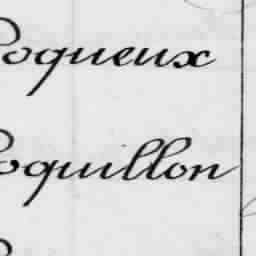 oqueux
oquillon